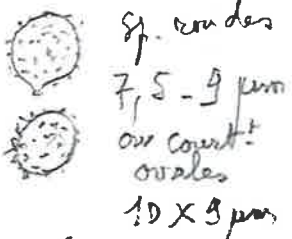 Sp. rondes
7,5 - 9 µm
ou court.t
ovales
10 X 9 µm